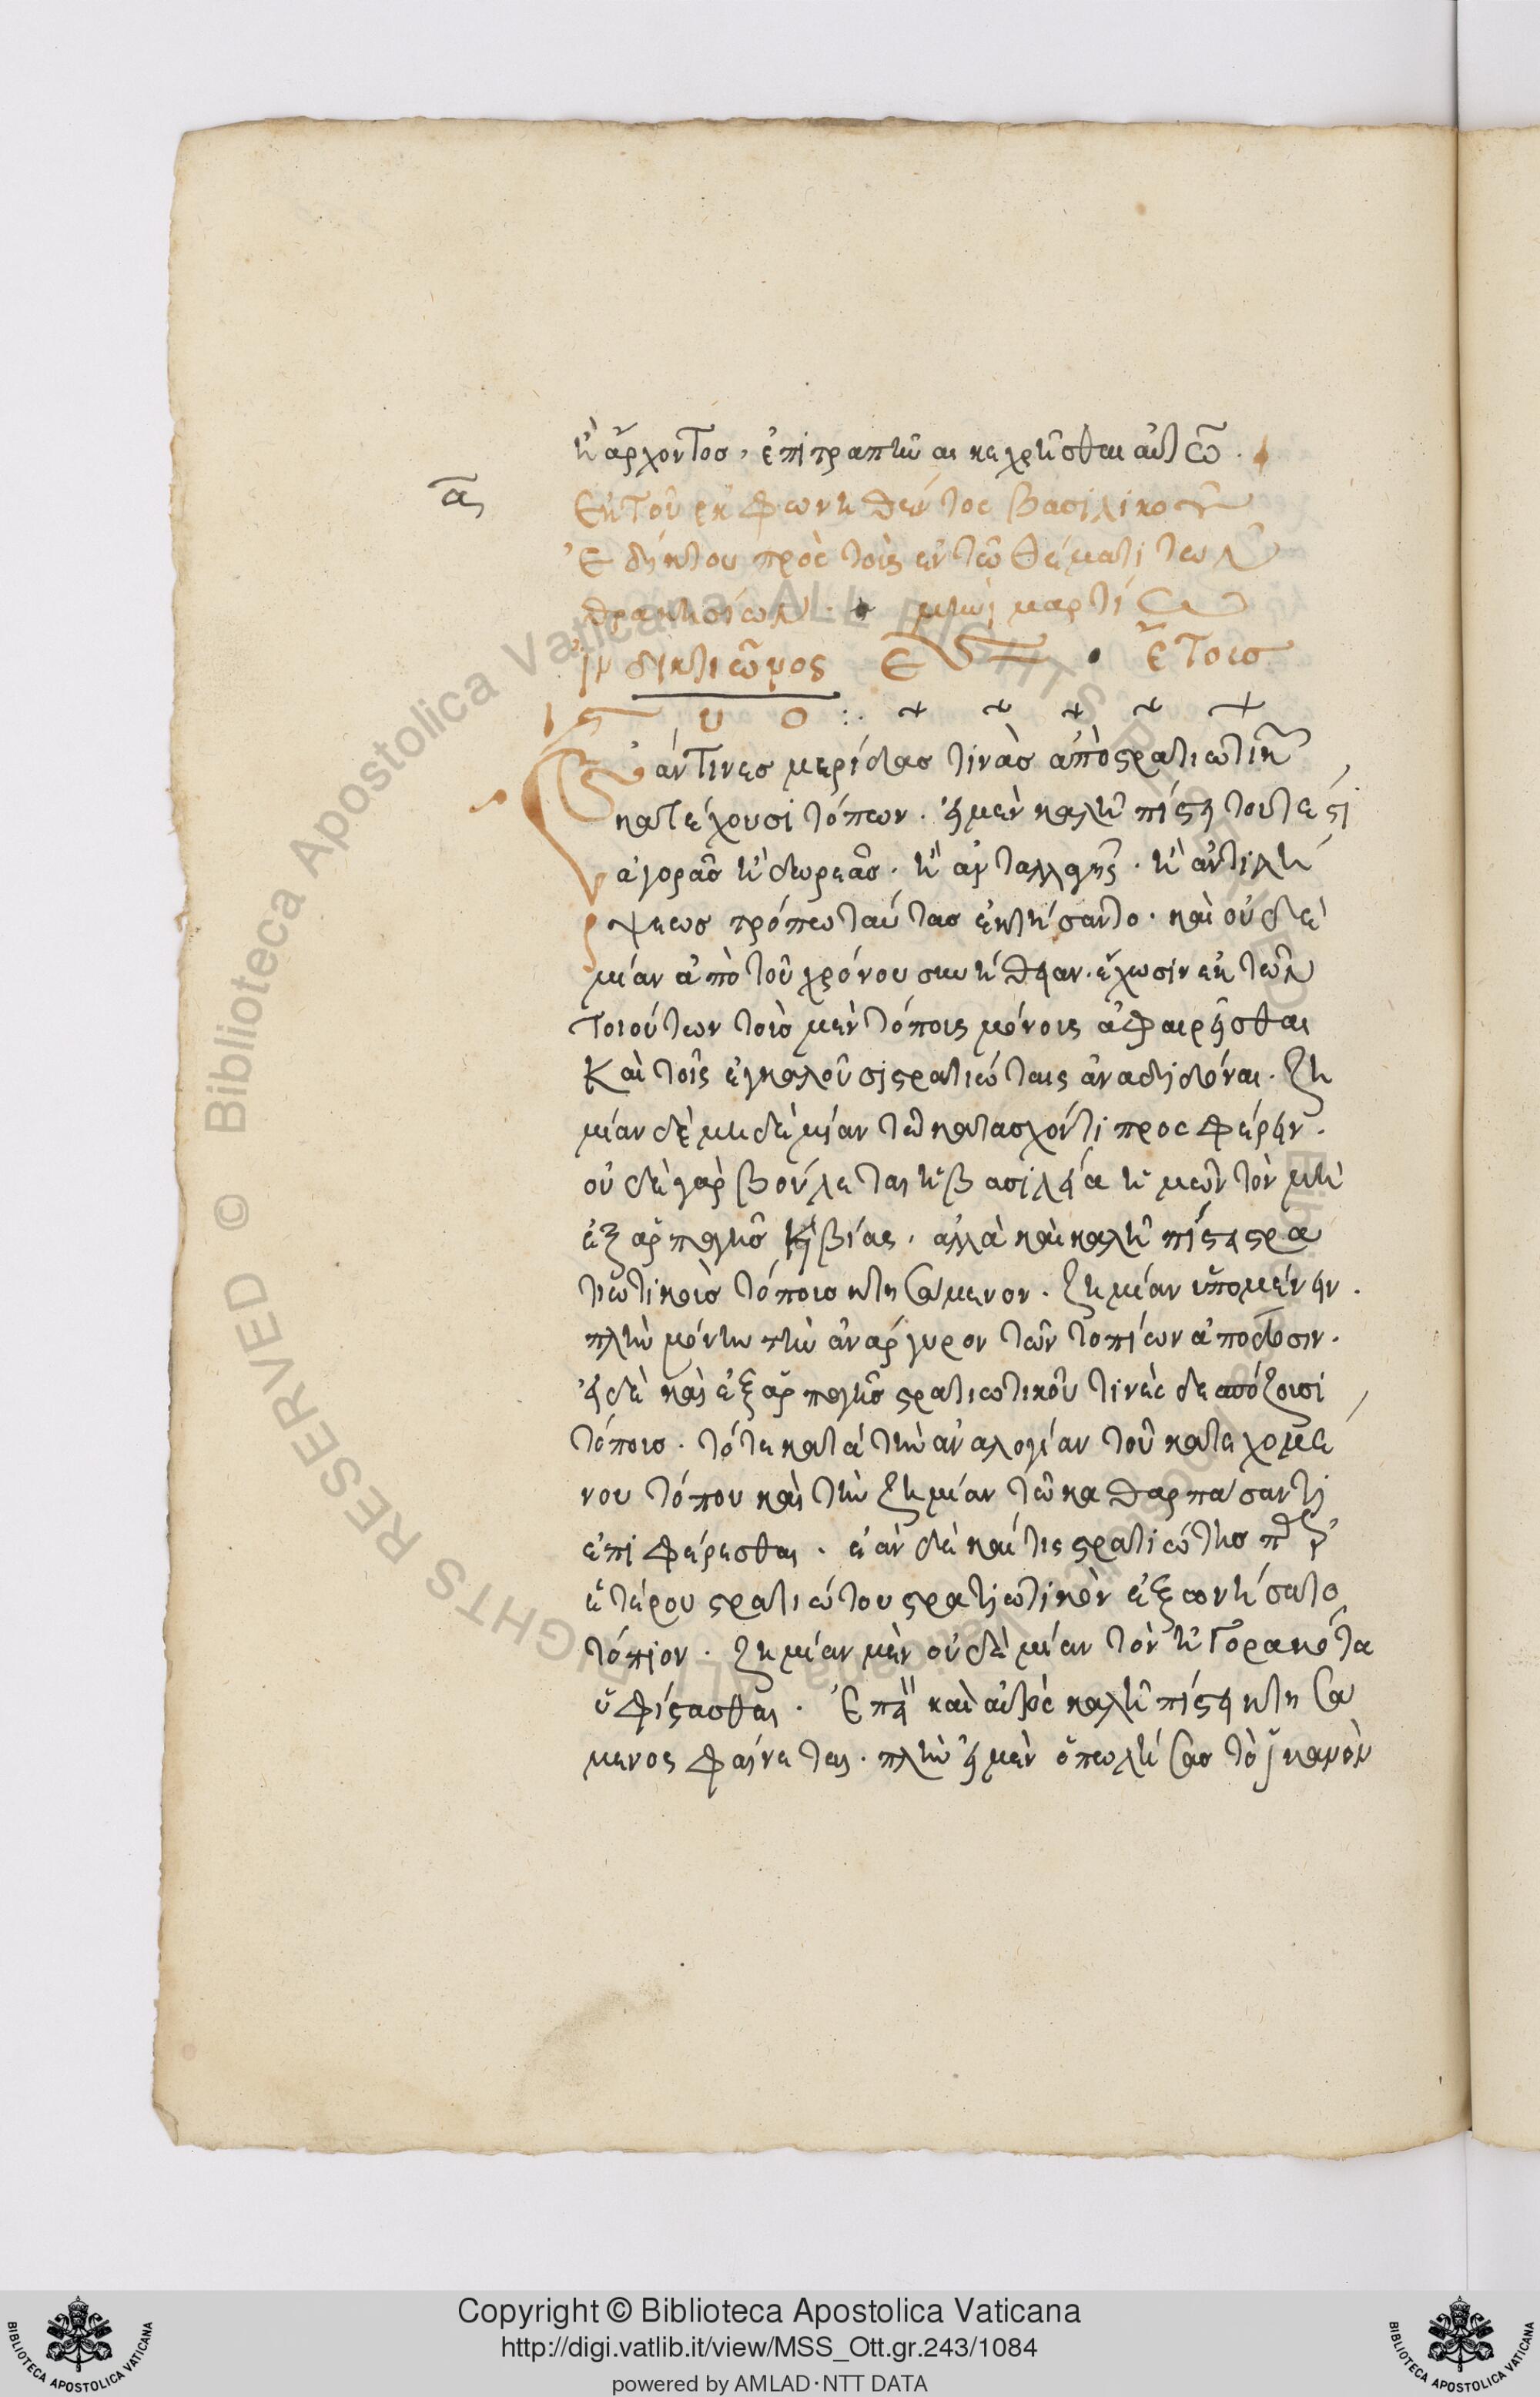 ἢ ἄρχοντος, ἐπιτραπῆναι κεχρῆσθαι αὐτῶ.
α
Ἐκ τοῦ ἐκφωνηθέντος βασιλικοῦ
ἐδίκτου πρὸς τοὺς ἐν τῶ θέματι τῶν
θρακησίων. μηνὶ μαρτίω
ἰνδικτιῶνος ε ἔτους
ςυο
Ἐάν τινες μερίδας τινὰς ἀπὸ στρατιωτικῶν
κατέχουσι τόπων. εἰ μὲν καλῆ πίστει τουτέστι
ἀγορᾶς ἢ δωρεᾶς. ἢ ἀνταλλαγῆς. ἢ ἀντιλή
ψεως τρόπω ταύτας ἐκτήσαντο. καὶ οὐδε
μίαν ἀπὸ τοῦ χρόνου συνήθειαν ἔχωσιν ἐκ τῶν
τοιούτων τοὺς μὲν τόπους μόνους ἀφαιρεῖσθαι
καὶ τοῖς ἐγκαλοῦσι στρατιώταις ἀναδιδόναι. ζη
μίαν δὲ μηδεμίαν τῶ κατασχόντι προσφέρειν.
οὐδὲ γὰρ βούλεται ἡ βασιλεία ἡμῶν τὸν μὴ
ἐξ ἁρπαγῆς ἢ βίας. ἀλλὰ καὶ καλῆ πίστει στρα
τιωτικοὺς τόπους κτησάμενον. ζημίαν ὑπομένειν.
πλὴν μόνην τὴν ἀνάργυρον τῶν τοπίων ἀπόδοσιν.
εἰ δὲ καὶ ἐξ ἁρπαγῆς στρατιωτικοῦ τινὲς δεσπόζουσι
τόπους. τότε κατὰ τὴν ἀναλογίαν τοῦ κατεχομέ
νου τόπου καὶ τὴν ζημίαν τῶ καθαρπάσαντι
ἐπιφέρεσθαι. ἐὰν δὲ καί τις στρατιώτης
ἑτέρου στρατιώτου στρατιωτικὸν ἐξωνήσατο
τόπιον. ζημίαν μὲν οὐδεμίαν τὸν ἠγορακότα
ὑφίστασθαι. ἐπεὶ καὶ αὐτὸς καλῆ πίστει κτησά
μενος φαίνεται. πλὴν εἰ μὲν ὁ πωλήσας τὸ ἱκανὸν
Copyright © Biblioteca Apostolica Vaticana
http://digi.vatlib.it/view/MSS_Ott.gr.243/1084
powered by AMLAD·NTT DATA
BIBLIOTECA APOSTOLICA VATICANA
BIBLIOTECA APOSTOLICA VATICANA
© Biblioteca Apostolica Vaticana ALL RIGHTS RESERVED